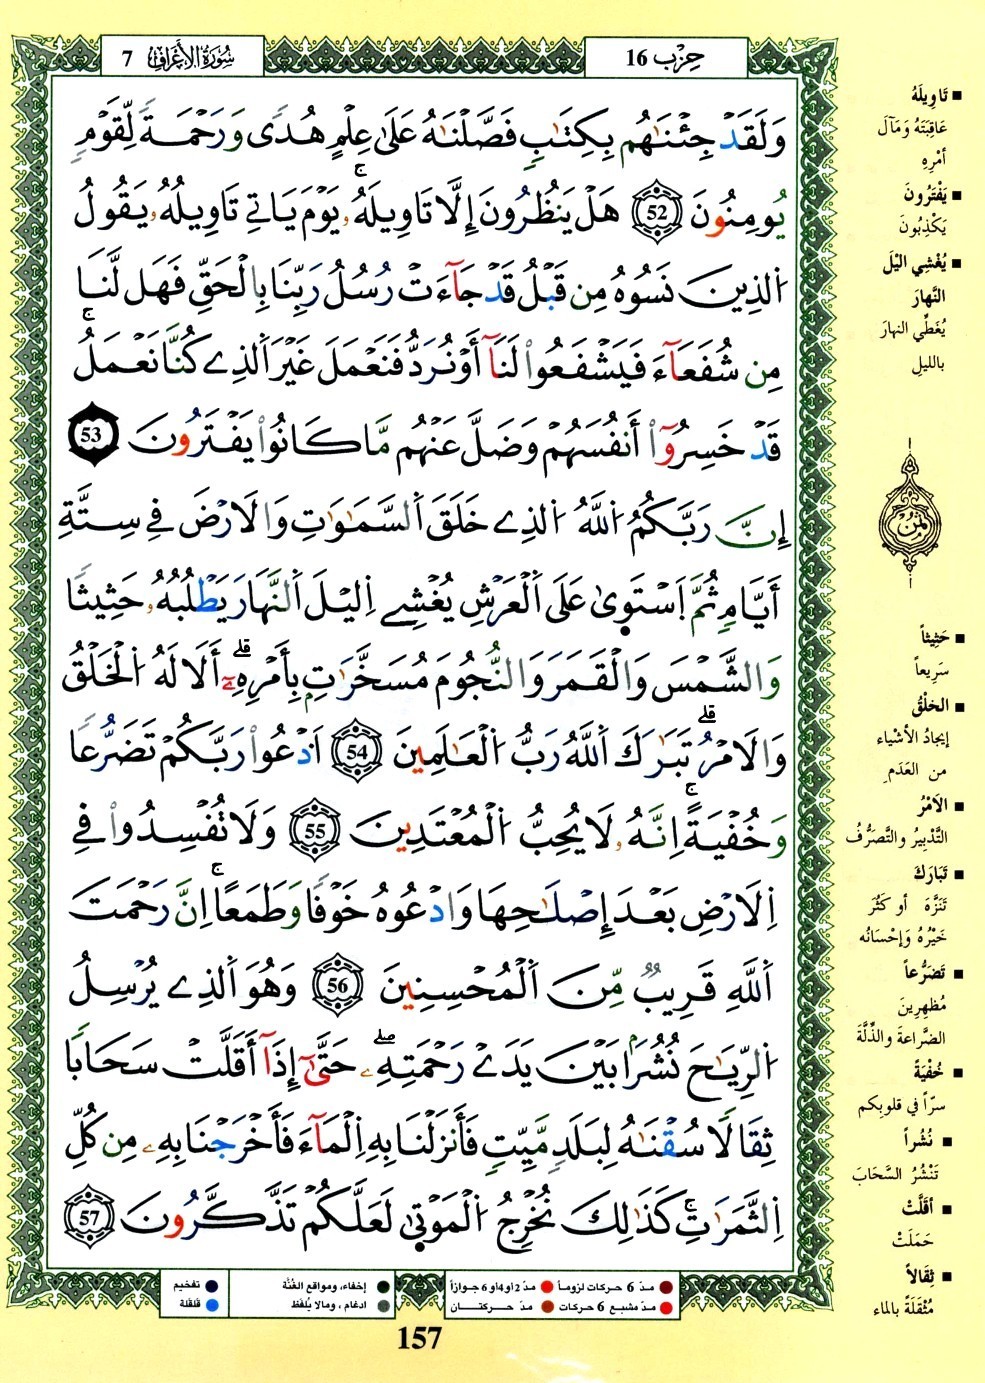 سُورَةُ الأَعْرَافِ 7
حِزْب 16
وَلَقَدْ جِئْنَٰهُم بِكِتَٰبٍ فَصَّلْنَٰهُ عَلَىٰ عِلْمٍ هُدًى وَرَحْمَةً لِّقَوْمٍ
يُومِنُونَ 52 هَلْ يَنظُرُونَ إِلَّا تَاوِيلَهُۥ يَوْمَ يَاتِے تَاوِيلُهُۥ يَقُولُ
اُلذِينَ نَسُوهُ مِن قَبْلُ قَدْ جَآءَتْ رُسُلُ رَبِّنَا بِالْحَقِّ فَهَل لَّنَا
مِن شُفَعَآءَ فَيَشْفَعُواْ لَنَآ أَوْ نُرَدُّ فَنَعْمَلَ غَيْرَ اَلذِے كُنَّا نَعْمَلُ
قَدْ خَسِرُوٓاْ أَنفُسَهُمْ وَضَلَّ عَنْهُم مَّا كَانُواْ يَفْتَرُونَ 53
إِنَّ رَبَّكُمُ اُللَّهُ اُلذِے خَلَقَ اَلسَّمَٰوَٰتِ وَالَارْضَ فِے سِتَّةِ
أَيَّامٍ ثُمَّ اَسْتَوۭىٰ عَلَى اَلْعَرْشِ يُغْشِے اِليْلَ اَلنَّهَارَ يَطْلُبُهُۥ حَثِيثًا
وَالشَّمْسَ وَالْقَمَرَ وَالنُّجُومَ مُسَخَّرَٰتٍۭ بِأَمْرِهِۦٓ أَلَا لَهُ اُلْخَلْقُ
وَالَامْرُ تَبَٰرَكَ اَللَّهُ رَبُّ اُلْعَٰلَمِينَ 54 اَدْعُواْ رَبَّكُمْ تَضَرُّعًا
وَخُفْيَةً اِنَّهُۥ لَا يُحِبُّ اُلْمُعْتَدِينَ 55 وَلَا تُفْسِدُواْ فِے
اِلَارْضِ بَعْدَ إِصْلَٰحِهَا وَادْعُوهُ خَوْفًا وَطَمَعًا اِنَّ رَحْمَتَ
اَللَّهِ قَرِيبٌ مِّنَ اَلْمُحْسِنِينَ 56 وَهُوَ اَلذِے يُرْسِلُ
اُلرِّيَٰحَ نُشُرًۢا بَيْنَ يَدَےْ رَحْمَتِهِۦ حَتَّىٰٓ إِذَآ أَقَلَّتْ سَحَابًا
ثِقَالًا سُقْنَٰهُ لِبَلَدٍ مَّيِّتٍ فَأَنزَلْنَا بِهِ اِلْمَآءَ فَأَخْرَجْنَا بِهِۦ مِن كُلِّ
اِلثَّمَرَٰتِ كَذَٰلِكَ نُخْرِجُ اُلْمَوْتىٰ لَعَلَّكُمْ تَذَّكَّرُونَ 57
■ تَاوِيلَهُ
عَاقِبَتَهُ وَمَآلَ
أمْرِهِ
■ يَفْتَرُونَ
يَكْذِبُونَ
■ يُغْشِي اليْلَ
النَّهارَ
يُغَطِّي النهارَ
بالليلِ
ثمن
■ حَثِيثاً
سَرِيعاً
■ الخلْقُ
إيجادُ الأشْياء
من العَدَمِ
■ الاَمْرُ
التَّدْبِيرُ والتَّصَرُّفُ
■ تَبَارَكَ
تَنَزَّهَ أو كَثُرَ
خَيْرُهُ وَإحْسَانُه
■ تَضَرُّعاً
مُظهِرِينَ
الضَّراعةَ والذِّلَّةَ
■ خُفْيَةً
سرّاً في قلوبكم
■ نُشُراً
تَنْشُرُ السَّحَابَ
■ أقَلَّتْ
حَمَلَتْ
■ ثِقَالاً
مُثْقَلَةً بالماء
مدّ 6 حركات لزوماً ● مدّ 2 أو 4 أو 6 جوازاً
مدّ مشبع 6 حركات ● مدّ حركتان
إخفاء، ومواقع الغُنَّة ● تفخيم
ادغام، وما لا يُلفَظ ● قلقلة
157